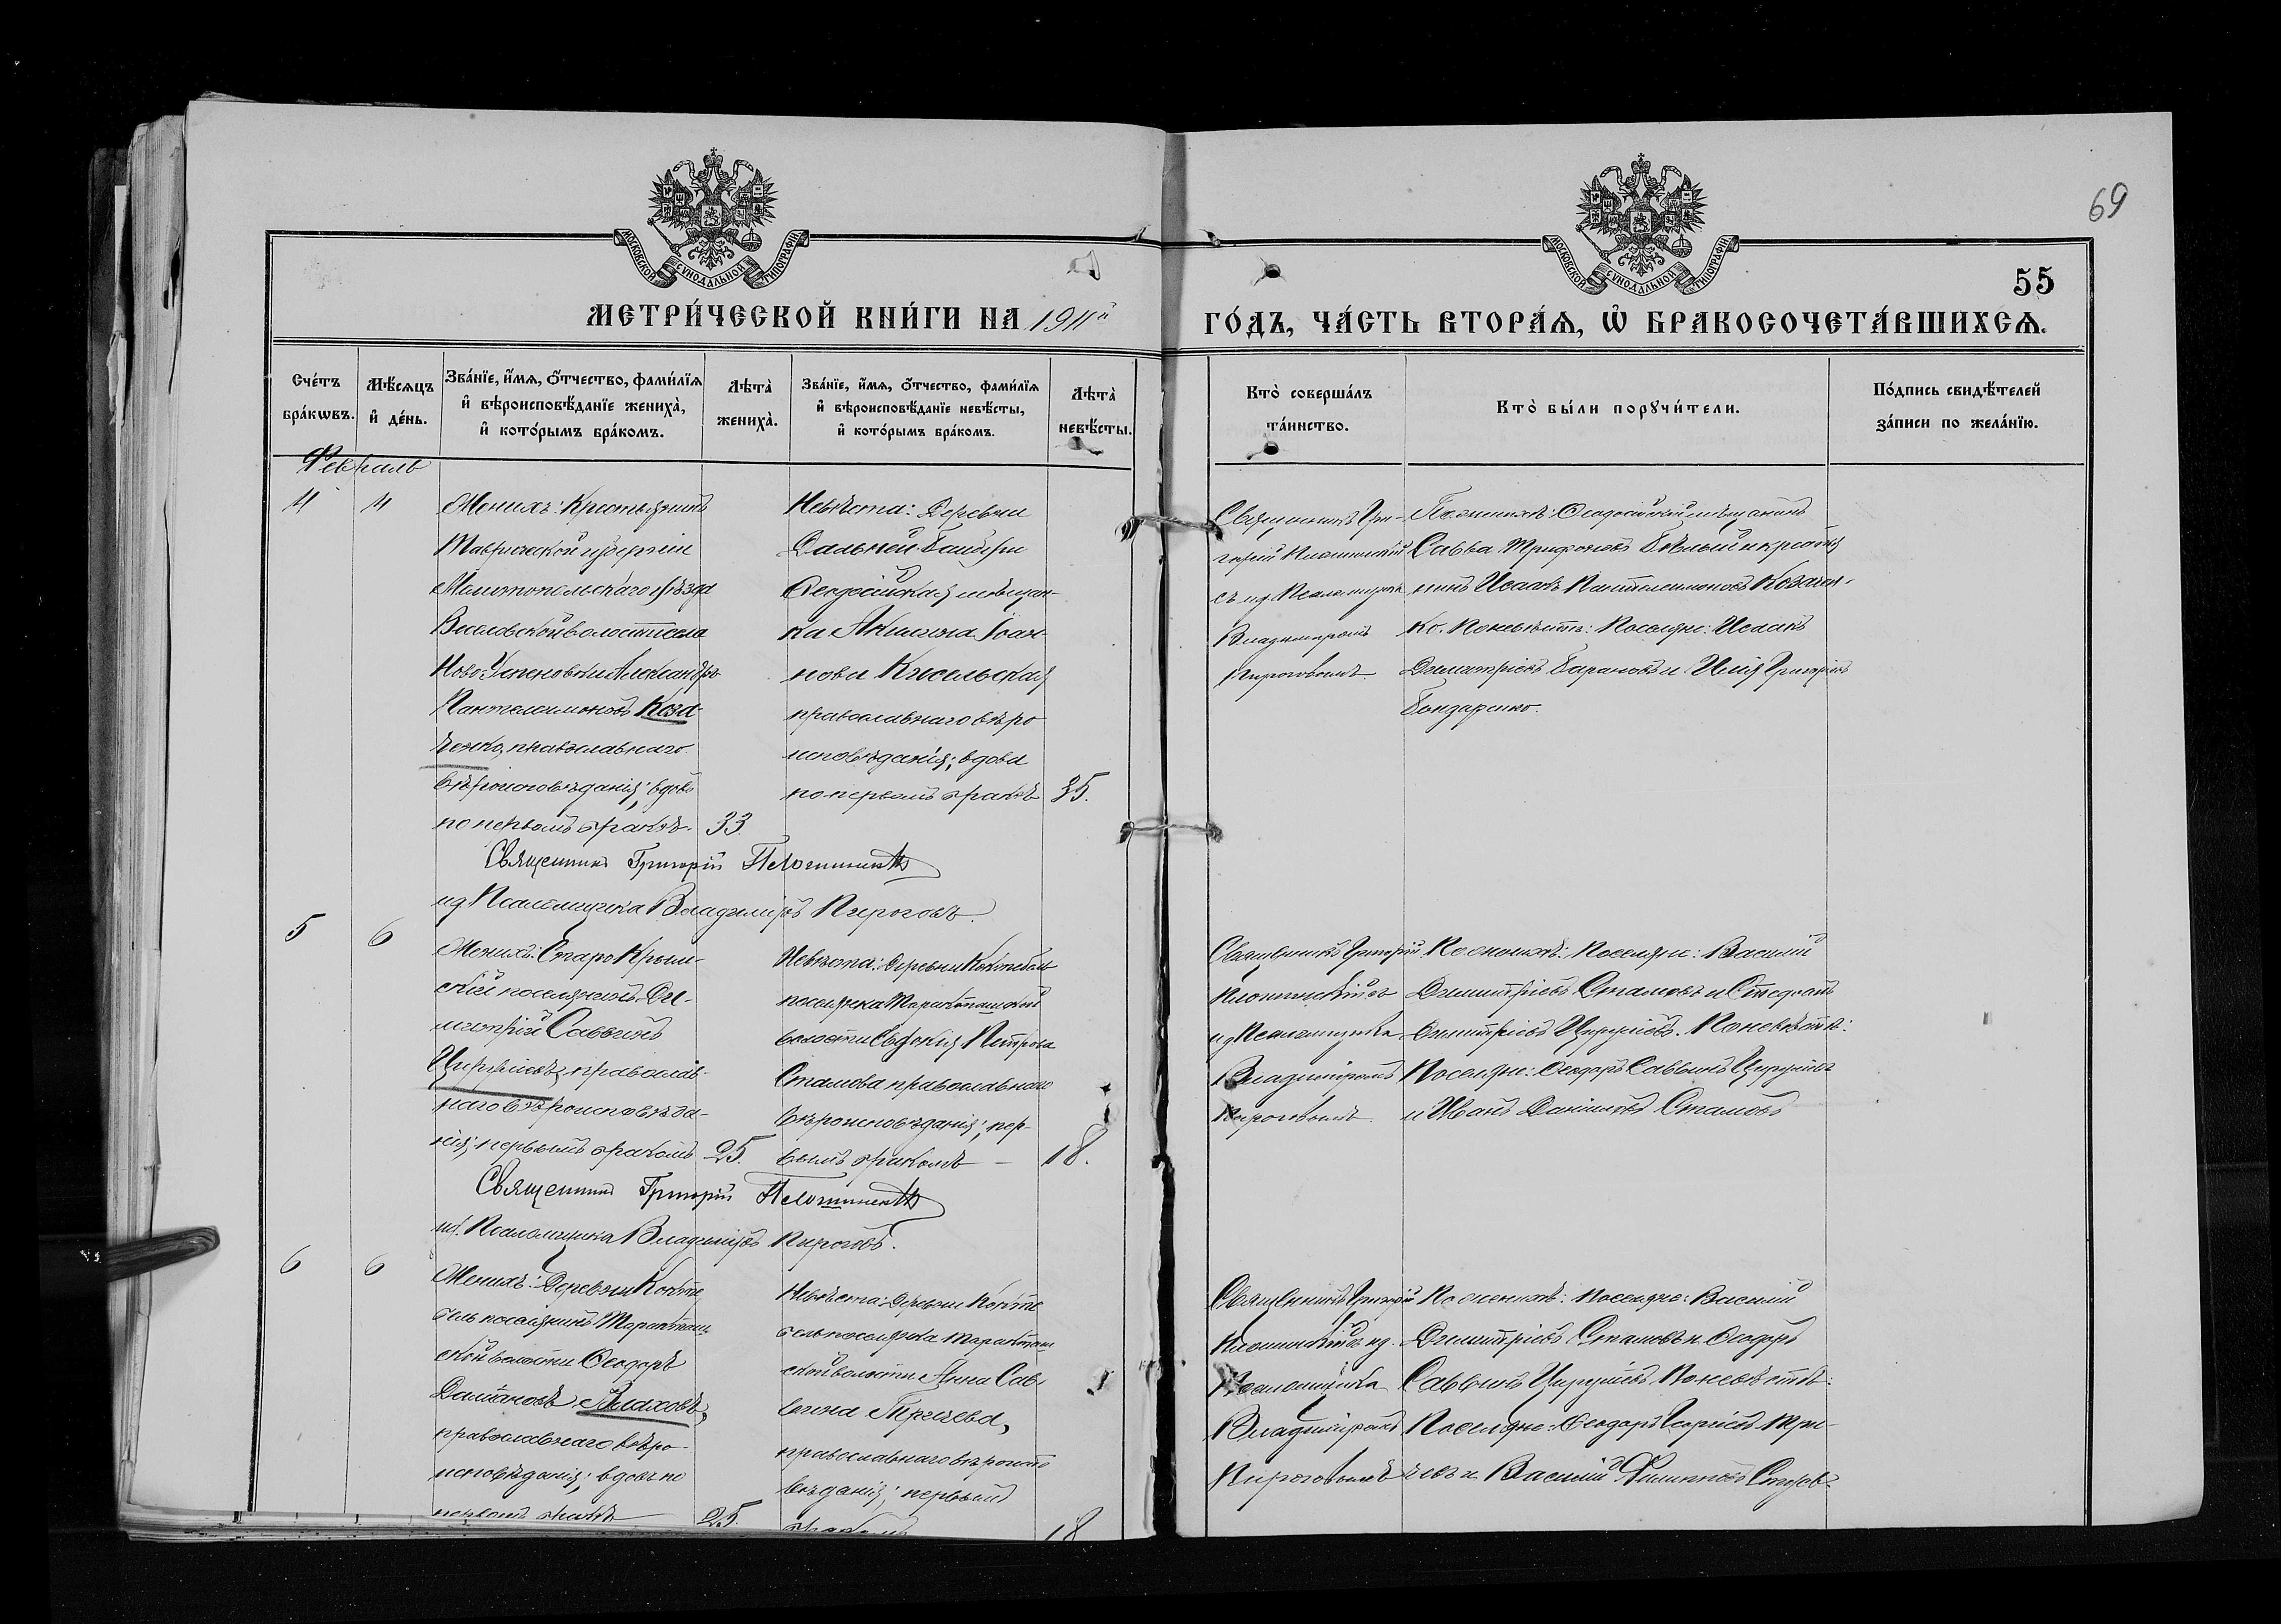 69
55
МОСКОВСКОЙ СѴНОДАЛЬНОЙ ТИПОГРАФІИ
МОСКОВСКОЙ СѴНОДАЛЬНОЙ ТИПОГРАФІИ
МЕТРИ́ЧЕСКОЙ КНИ́ГИ НА 1911й
ГО́ДЪ, ЧА́СТЬ ВТОРА́Ѧ, Ѡ҆ БРАКОСОЧЕТА́ВШИХСѦ.
Сче́тъ бра́кѡвъ.
Мѣ́сѧцъ и҆ де́нь.
Зва́нїе, и҆́мѧ, ѻ҆́тчество, фами́лїѧ
и҆ вѣроисповѣ́данїе жениха̀,
и҆ кото́рымъ бра́комъ.
Лѣта̀ жениха̀.
Зва́нїе, и҆́мѧ, ѻ҆́тчество, фами́лїѧ
и҆ вѣроисповѣ́данїе невѣ́сты,
и҆ кото́рымъ бра́комъ.
Лѣта̀ невѣ́сты.
Кто̀ соверша́лъ
та́инство.
Кто̀ бы́ли порꙋчи́тели.
По́дпись свидѣ́телей
за́писи по жела́нїю.
Февраль
4
4
Женихъ: Крестьянинъ
Таврической губерніи
Мелитопольскаго уѣзда
Веселовской волости села
Ново-Успеновки Александръ
Пантелеимоновъ Коза-
ченко, православнаго
вѣроисповѣданія; вдовъ
по первомъ бракѣ.
33.
Невѣста: Деревни
Дальней Байбуги
Ѳеодосійская мѣщан-
ка Акилина Іоан-
нова Кисельская
православнаго вѣро
исповѣданія; вдова
по первомъ бракѣ
35.
Священникъ Гри-
горій Плотинскій
съ ид. Псаломщика
Владиміромъ
Пироговымъ.
По женихѣ: Ѳеодосійскій мѣщанинъ
Савва Трифоновъ Бѣлый и крестья
нинъ Исаакъ Пантелеимоновъ Козачен-
ко. По невѣстѣ: Поселяне: Исаакъ
Димитріевъ Барановъ и Илія Григорьевъ
Бондаренко.
Священникъ Григорій Плотинскій
ид. Псаломщика Владиміръ Пироговъ.
5
6
Женихъ: Старо Крым-
скій поселянинъ Ди-
митрій Саввинъ
Цируліевъ, православ-
наго вѣроисповѣда-
нія; первымъ бракомъ
25.
Невѣста: Деревни Коктебель
поселянка Таракташской
волости Евдокія Петрова
Стамова православнаго
вѣроисповѣданія; пер-
вымъ бракомъ —
18.
Священникъ Григорій
Плотинскій съ
ид Псаломщика
Владиміромъ
Пироговымъ.
По женихѣ: Поселяне: Василій
Димитріевъ Стамовъ и Стефанъ
Димитріевъ Цируліевъ. По невѣстѣ:
Поселяне: Ѳеодоръ Саввинъ Цируліевъ
и Иванъ Даніиловъ Стамовъ
Священникъ Григорій Плотинскій
ид. Псаломщика Владиміръ Пироговъ.
6
6
Женихъ: Деревни Кокте
бель поселянинъ Таракташ
ской волости Ѳеодоръ
Даміановъ Влаховъ,
православнаго вѣро-
исповѣданія; вдовъ по
первомъ бракѣ
25.
Невѣста: Деревни Кокте
бель поселянка Таракташ
ской волости Анна Сав-
вина Тричева,
православнаго вѣроиспо
вѣданія; первымъ
бракомъ
18
Священникъ Григорій
Плотинскій съ ид.
Псаломщика
Владиміромъ
Пироговымъ
По женихѣ: Поселяне: Василій
Димитріевъ Стамовъ и Ѳеодоръ
Саввинъ Цируліевъ. По невѣстѣ:
Поселяне: Ѳеодоръ Георгіевъ Три-
чевъ и Василій Филипповъ